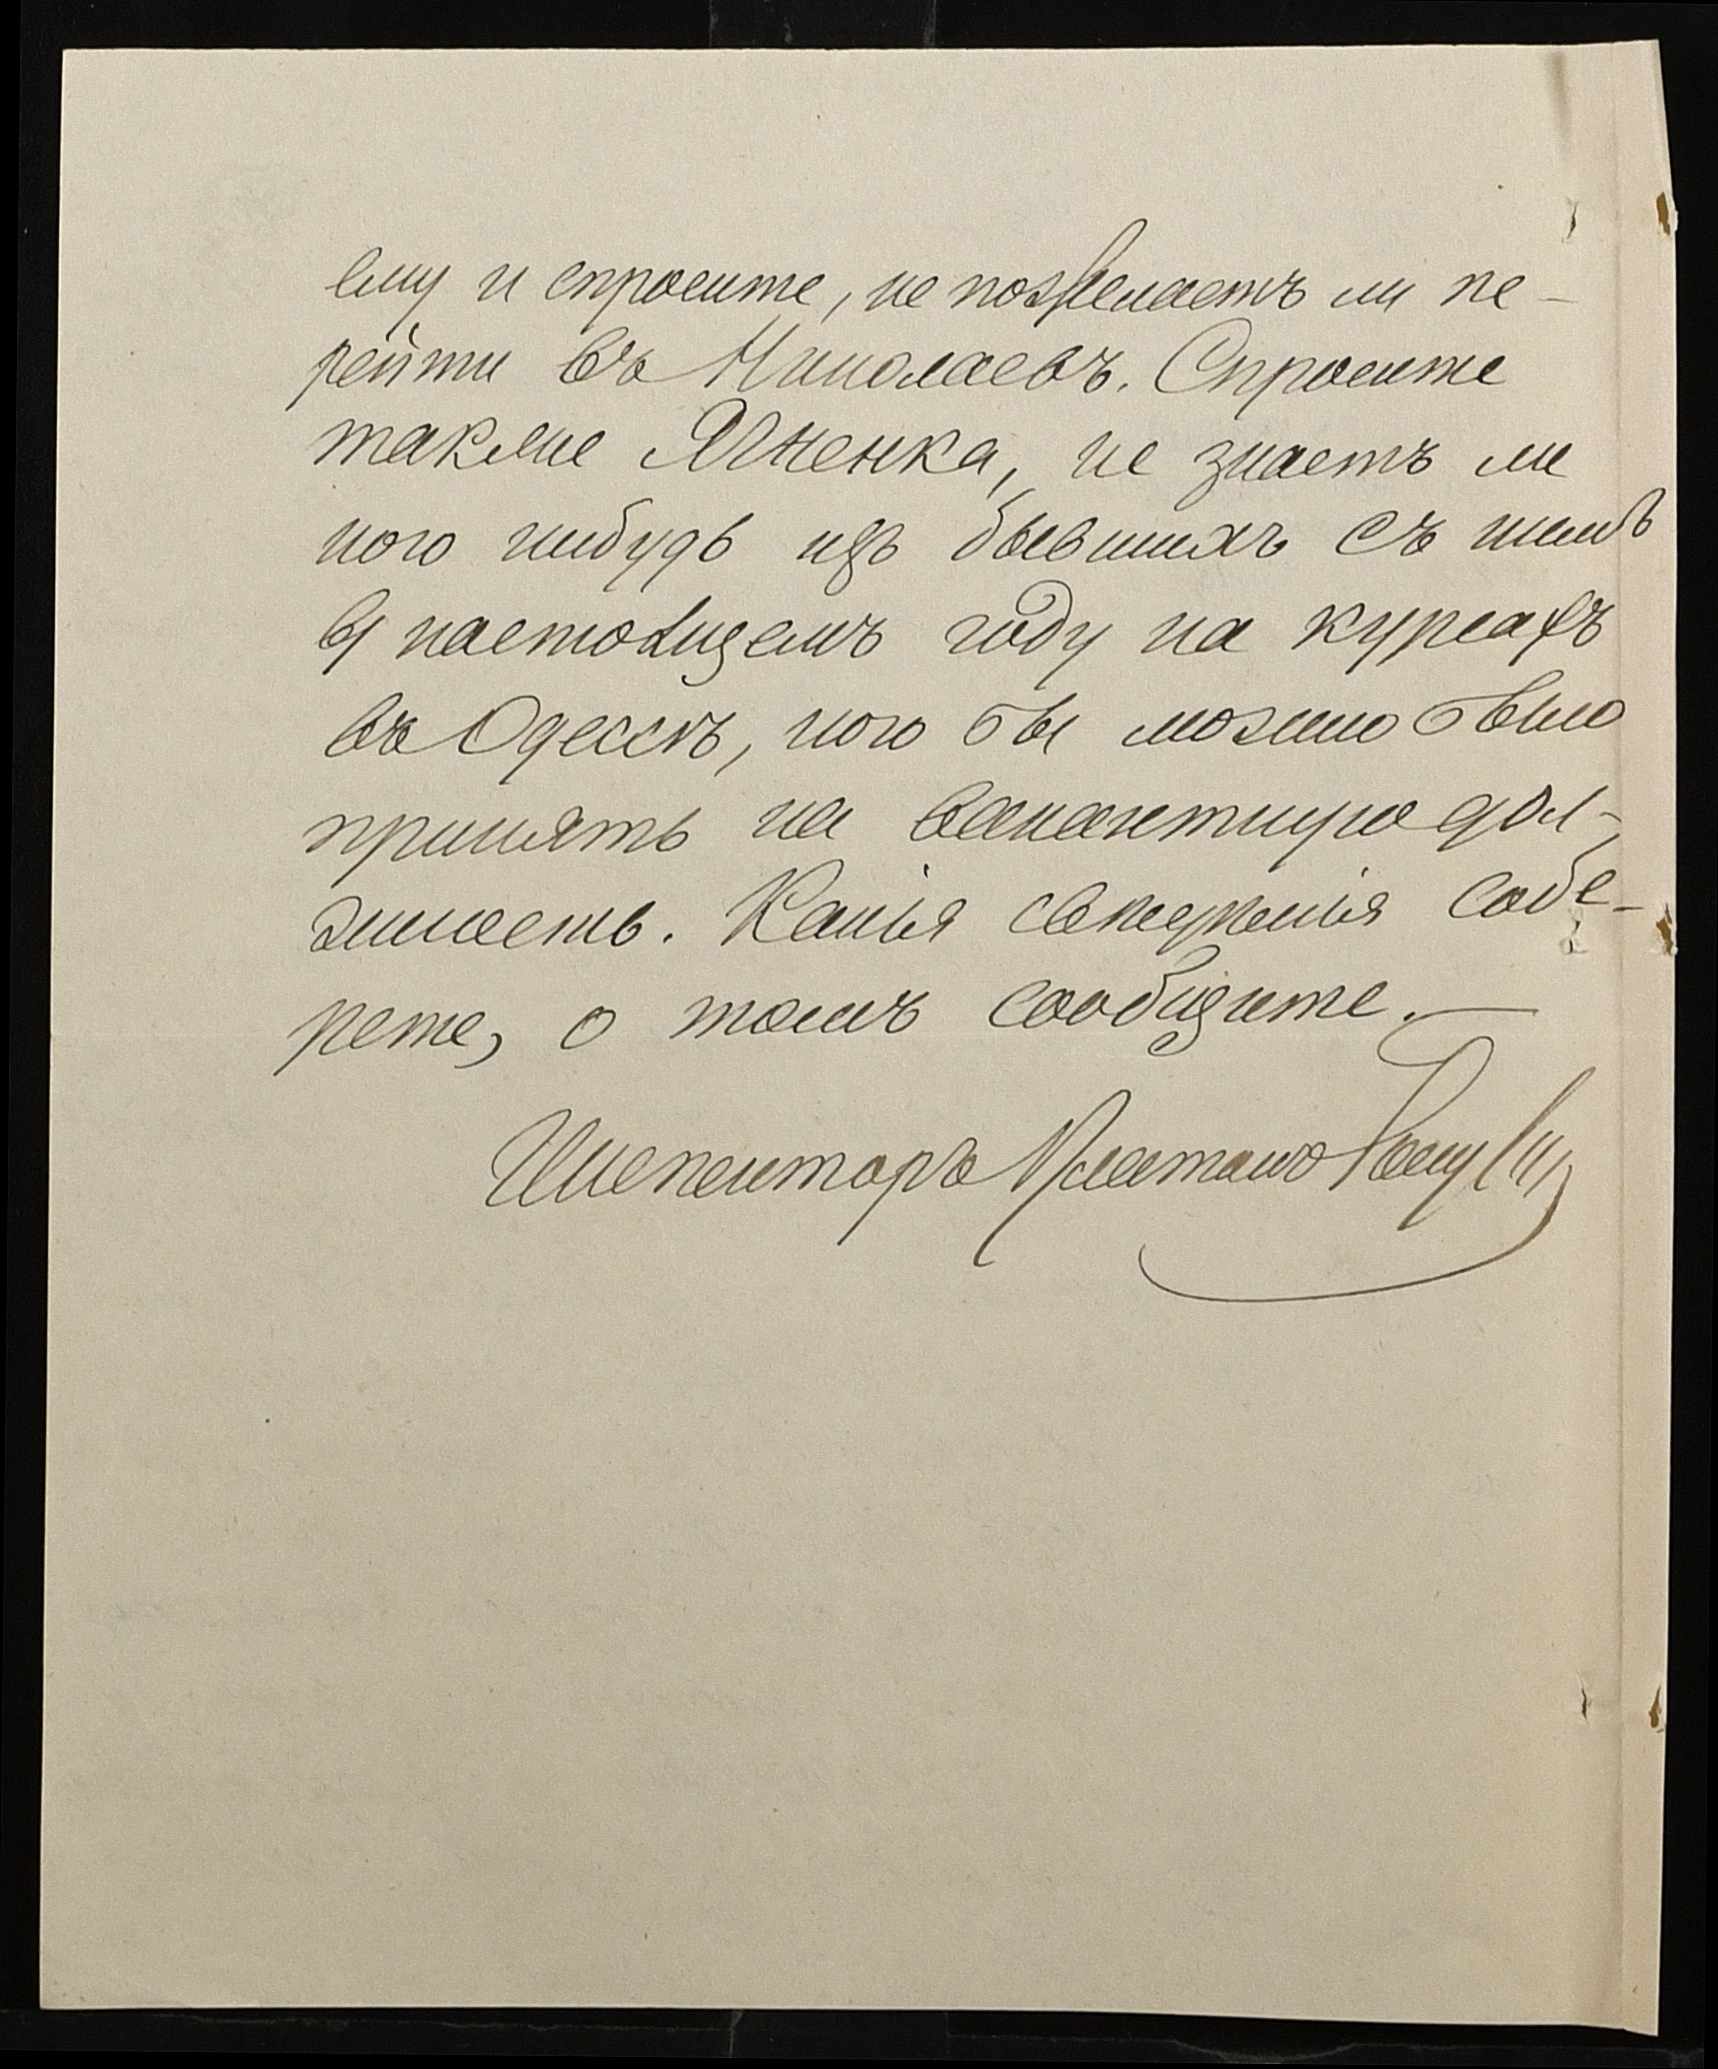 ему и спросите, не пожелаетъ ли пе-
рейти въ Николаевъ. Спросите
также Ягненка, не знаетъ ли
кого нибудь изъ бывшихъ съ нимъ
въ настоящемъ году на курсахъ
въ Одессѣ, кого бы можно было
принять на вакантную дол-
жность. Какія свѣдѣнія собе-
рете, о томъ сообщите.
Инспекторъ